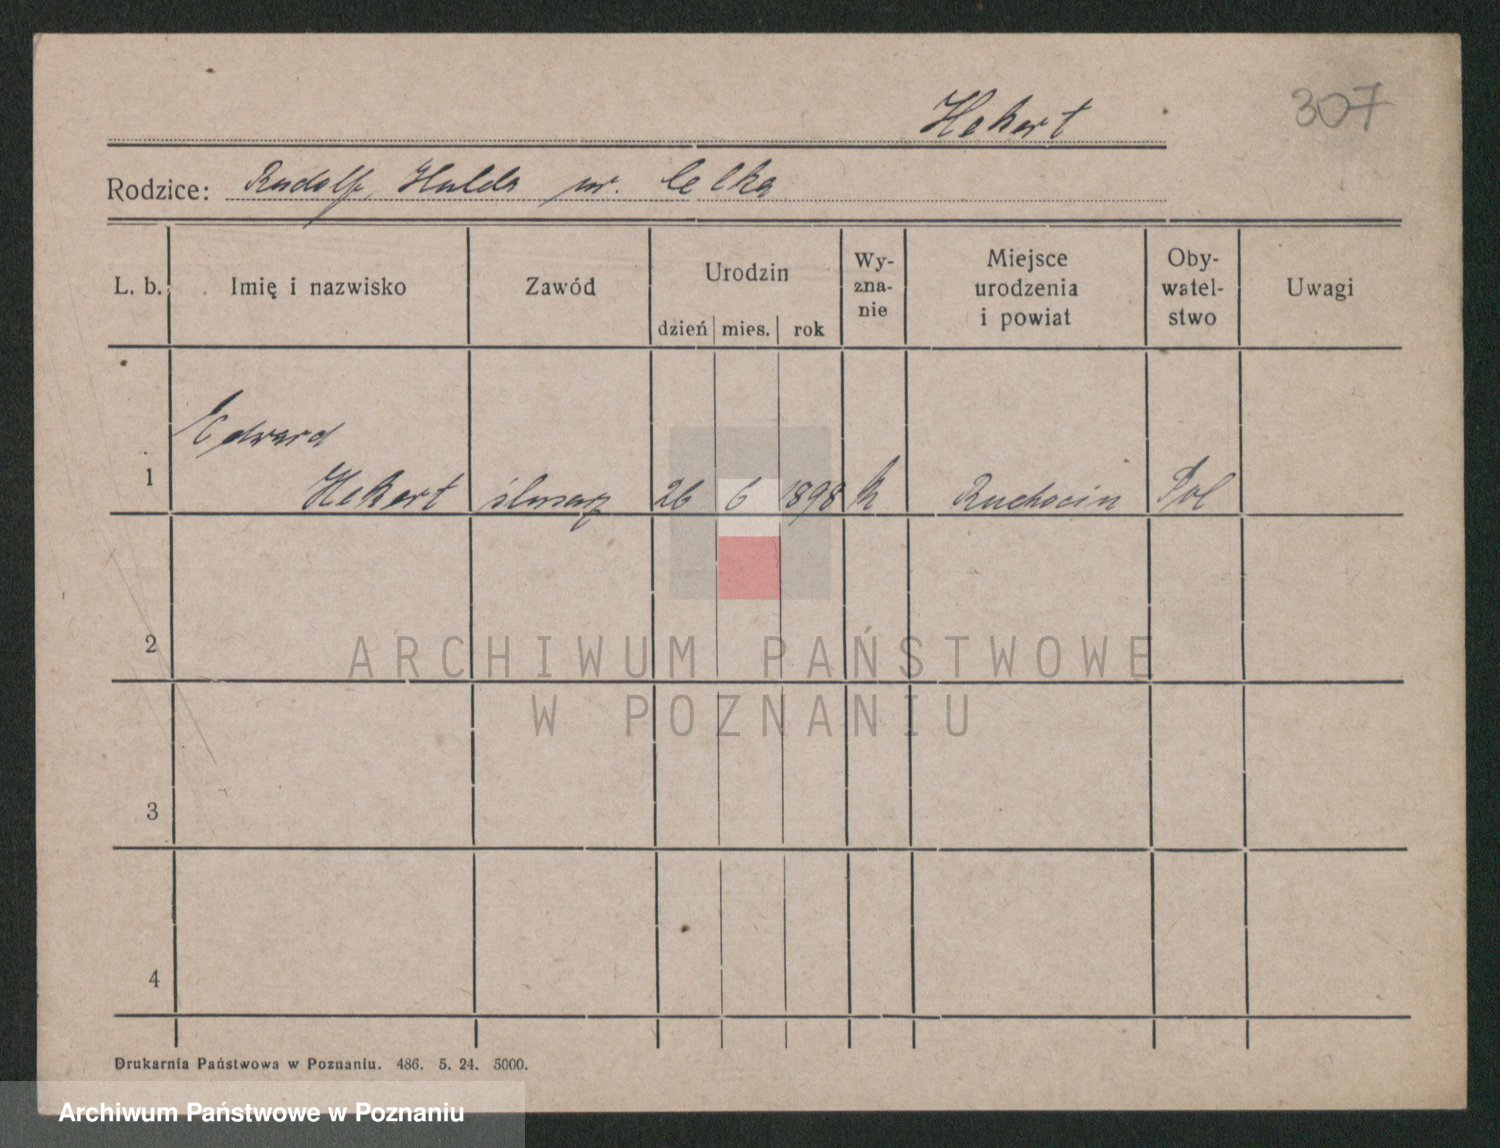 Hekert
307
Rodzice: Rudolf, Hulda ur. Celka
L. b. Imię i nazwisko Zawód Urodzin dzień mies. rok Wy-zna-nie Miejsce urodzenia i powiat Oby-watel-stwo Uwagi
Edward
1 Hekert ślusarz 26 6 1898 k Ruchocin Pol
2
ARCHIWUM PAŃSTWOWE
W POZNANIU
3
4
Drukarnia Państwowa w Poznaniu. 486. 5. 24. 5000.
Archiwum Państwowe w Poznaniu